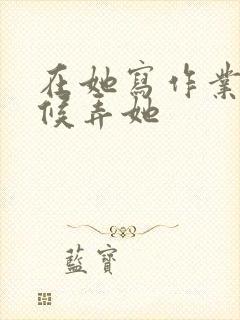 在她寫作業
候弄她
藍寶